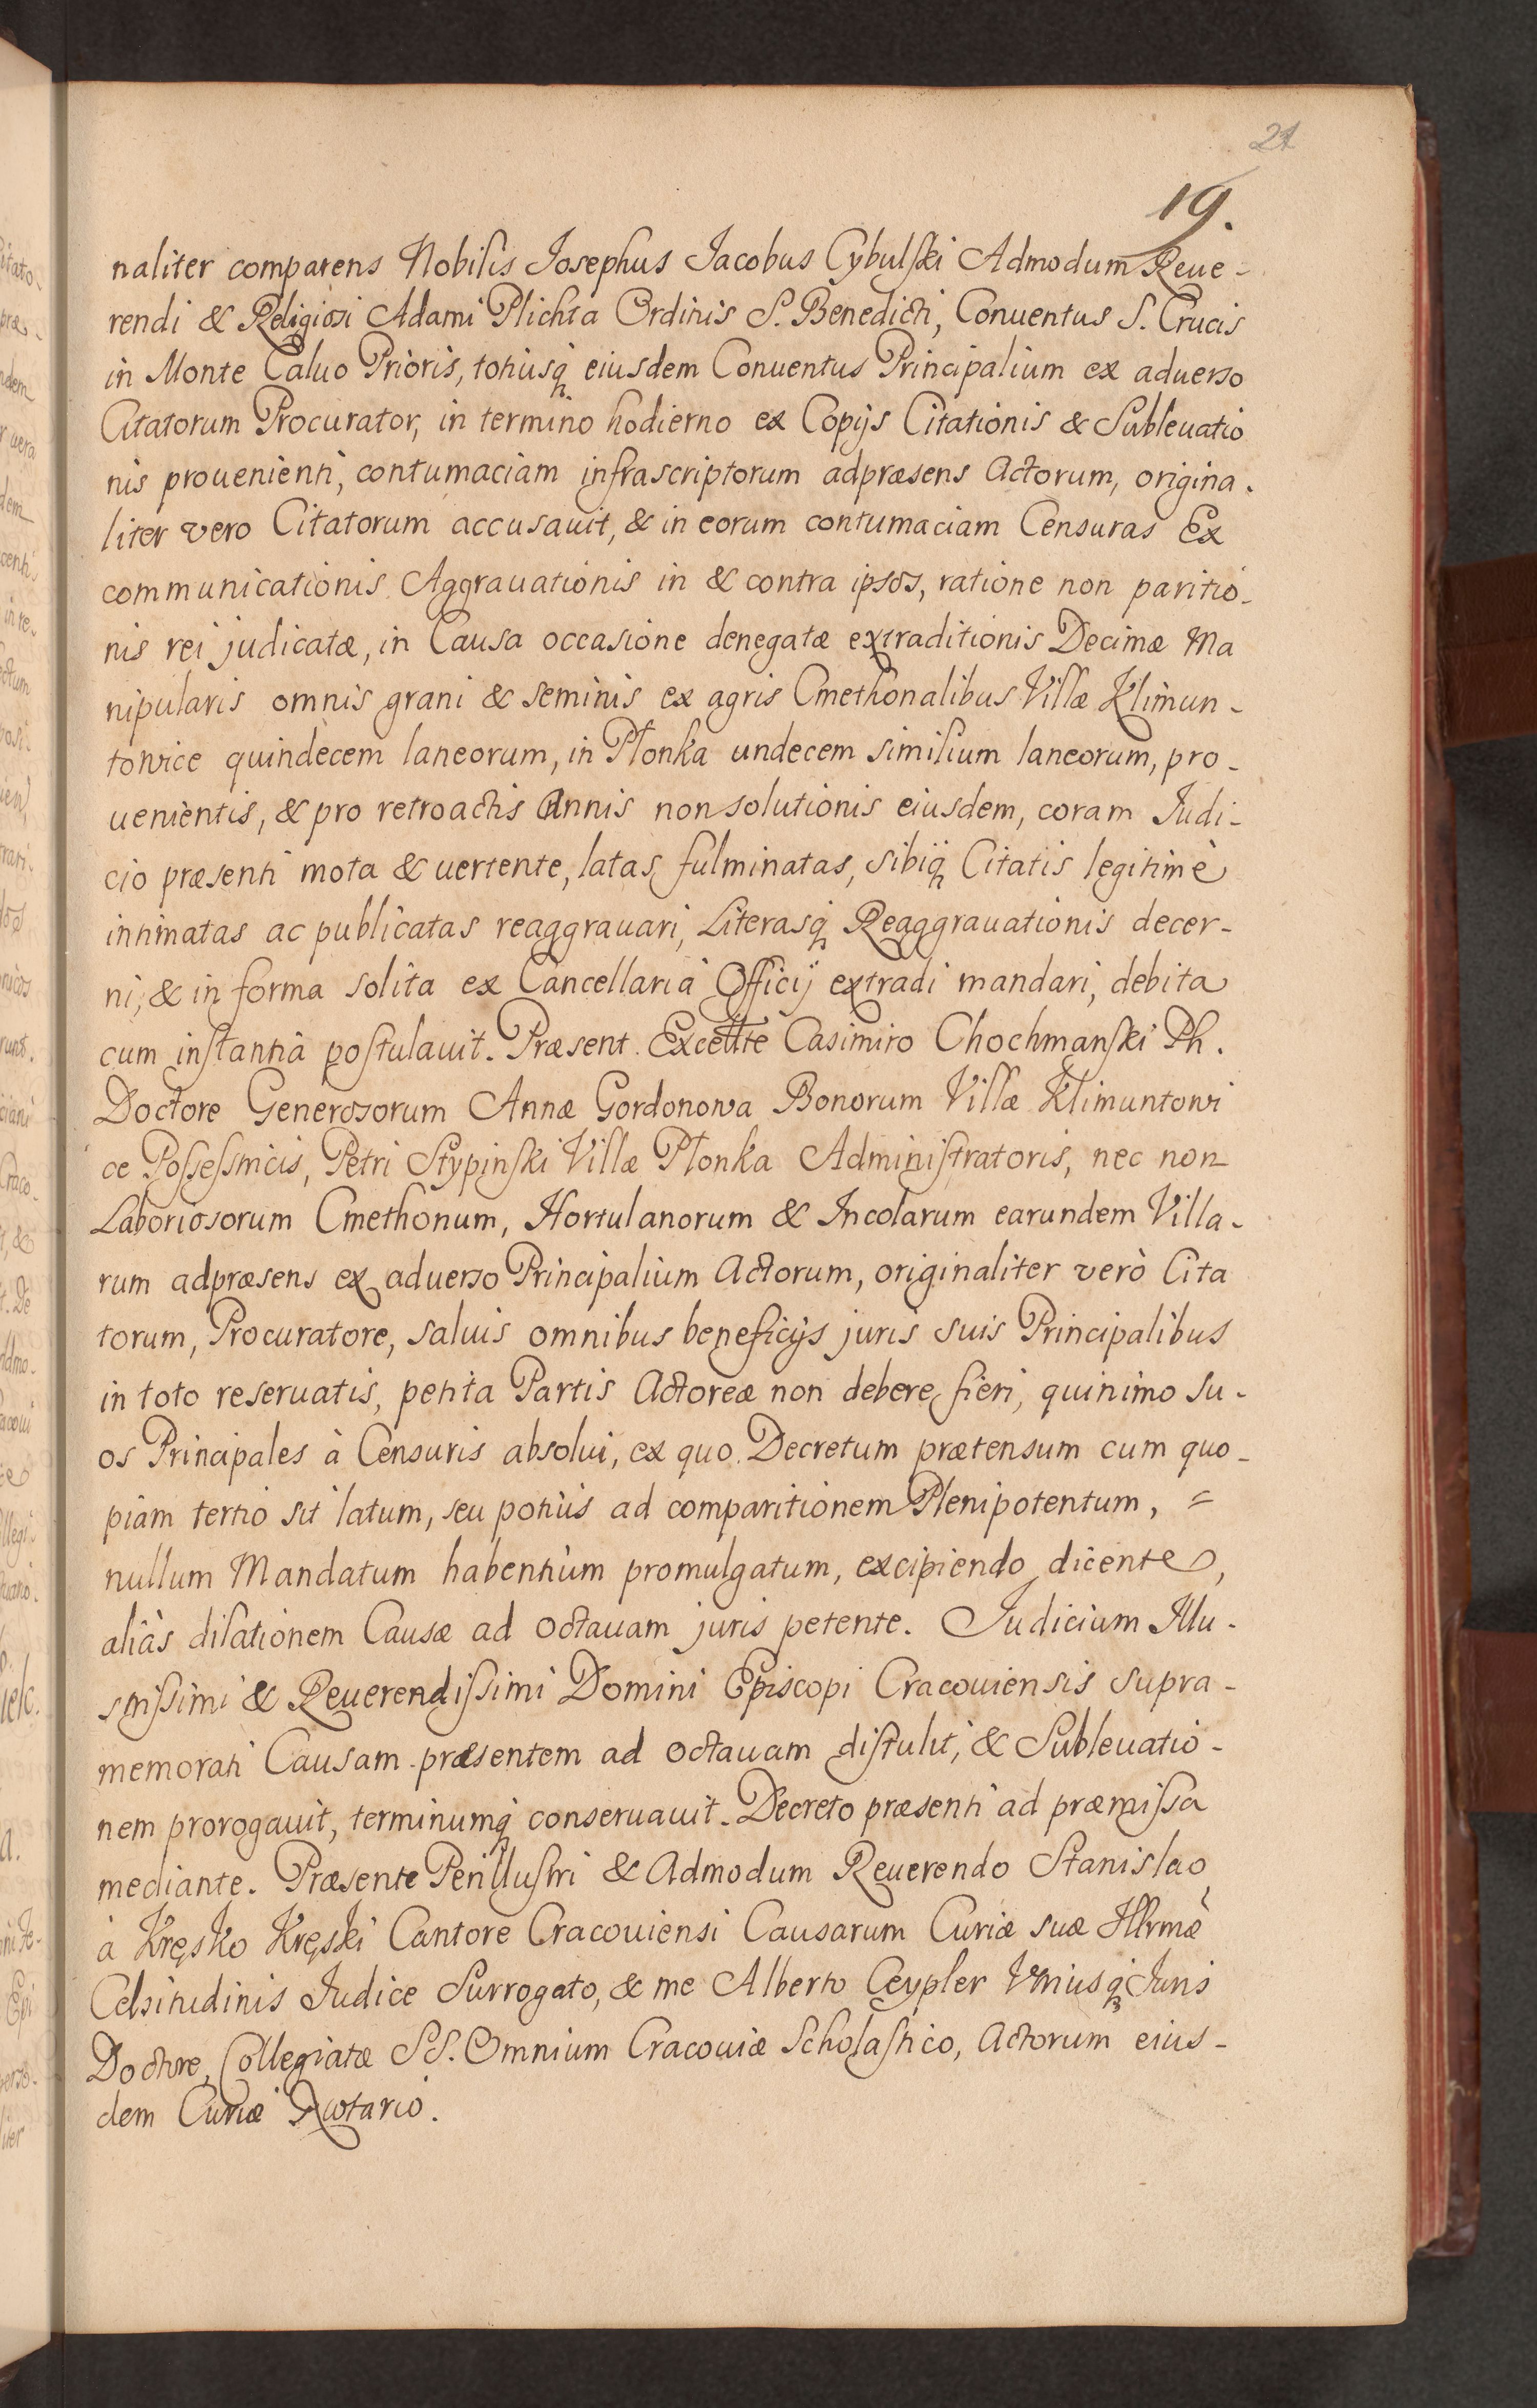 21
19.
naliter comparens Nobilis Josephus Jacobus Cybulski Admodum Reue-
rendi & Religiosi Adami Plichta Ordinis S. Benedicti, Conuentus S. Crucis
in Monte Caluo Prioris, totiusq́ eiusdem Conuentus Principalium ex aduerso
Citatorum Procurator, in termino hodierno ex Copijs Citationis & Subleuatio
nis prouenienti, contumaciam infrascriptorum adpræsens Actorum, origina-
liter vero Citatorum accusauit, & in eorum contumaciam Censuras Ex
communicationis Aggrauationis in & contra ipsos, ratione non paritio-
nis rei judicatæ, in Causa occasione denegatæ extraditionis Decimæ Ma
nipularis omnis grani & seminis ex agris Cmethonalibus Villæ Klimun-
towice quindecem laneorum, in Płonka undecem similium laneorum, pro-
uenientis, & pro retroactis Annis non solutionis eiusdem, coram Judi-
cio præsenti mota & uertente, latas, fulminatas, sibiq́ Citatis legitimè
intimatas ac publicatas reaggrauari, Literasq́ Reaggrauationis decer-
ni, & in forma solita ex Cancellaria Officij extradi mandari, debita
cum instantia postulauit. Præsent. Excellte Casimiro Chochmanski Ph.
Doctore Generosorum Annæ Gordonowa Bonorum Villæ Klimuntowi
ce Possessricis, Petri Stypinski Villæ Płonka Administratoris, nec non
Laboriosorum Cmethonum, Hortulanorum & Incolarum earundem Villa-
rum adpræsens ex aduerso Principalium Actorum, originaliter verò Cita
torum, Procuratore, saluis omnibus beneficijs juris suis Principalibus
in toto reseruatis, petita Partis Actoreæ non debere fieri, quinimo su-
os Principales à Censuris absolui, ex quo Decretum prætensum cum quo-
piam tertio sit latum, seu potiùs ad comparitionem Plenipotentum, =
nullum Mandatum habentium promulgatum, excipiendo dicente,
aliàs dilationem Causæ ad octauam juris petente. Judicium Illu-
strissimi & Reuerendissimi Domini Episcopi Cracouiensis supra-
memorati Causam præsentem ad octauam distulit, & Subleuatio-
nem prorogauit, terminumq́ conseruauit. Decreto præsenti ad præmissa
mediante. Præsente Perillustri & Admodum Reuerendo Stanislao
à Kręsko Kręski Cantore Cracouiensi Causarum Curiæ suæ Illrmæ
Celsitudinis Judice Surrogato, & me Alberto Ceypler Vtriusq́ Juris
Doctore, Collegiatæ SS. Omnium Cracouiæ Scholastico, Actorum eius-
dem Curiæ Notario.